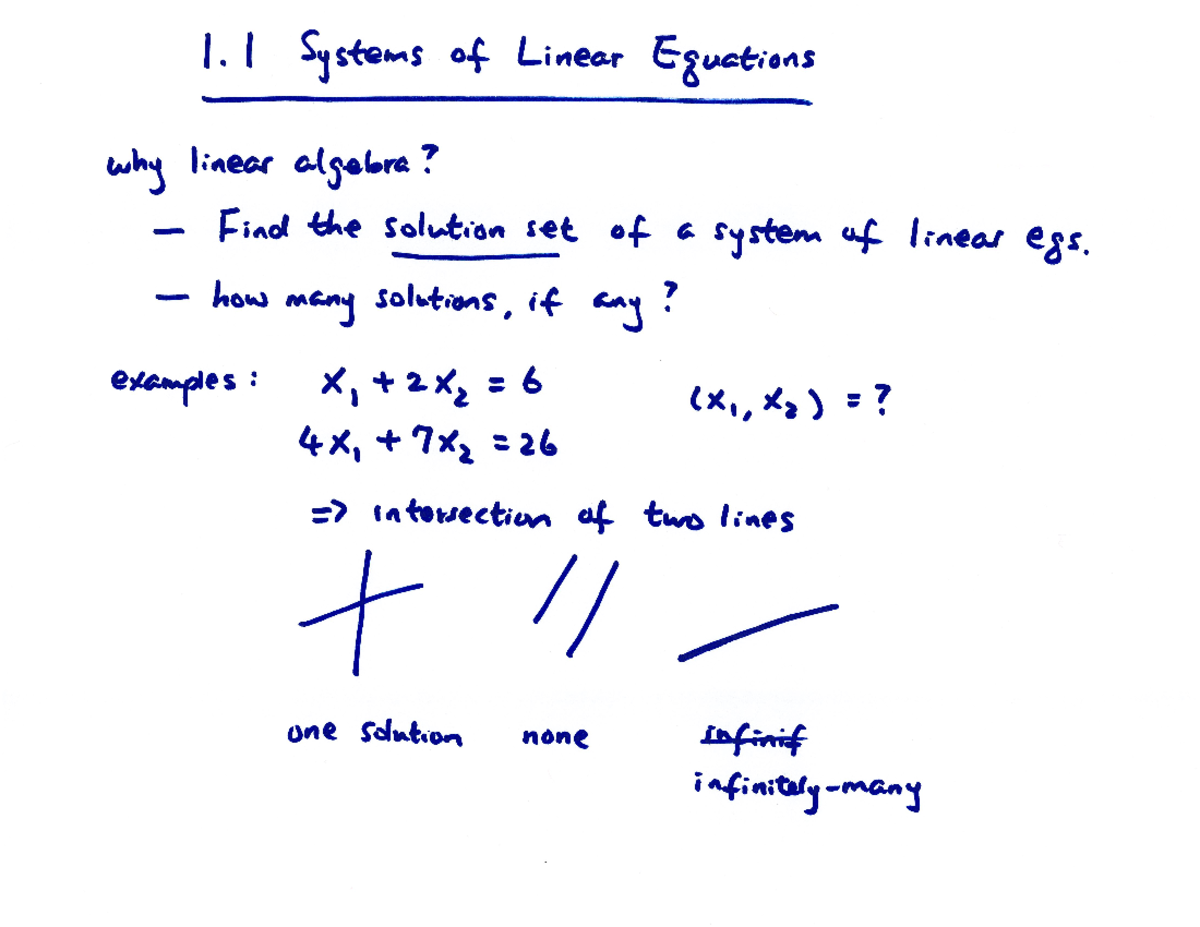 1.1 Systems of Linear Equations
why linear algebra?
– Find the solution set of a system of linear eqs.
– how many solutions, if any?
examples: x₁ + 2x₂ = 6
(x₁, x₂) = ?
4x₁ + 7x₂ = 26
=> intersection of two lines
one solution none infinif
infinitely-many